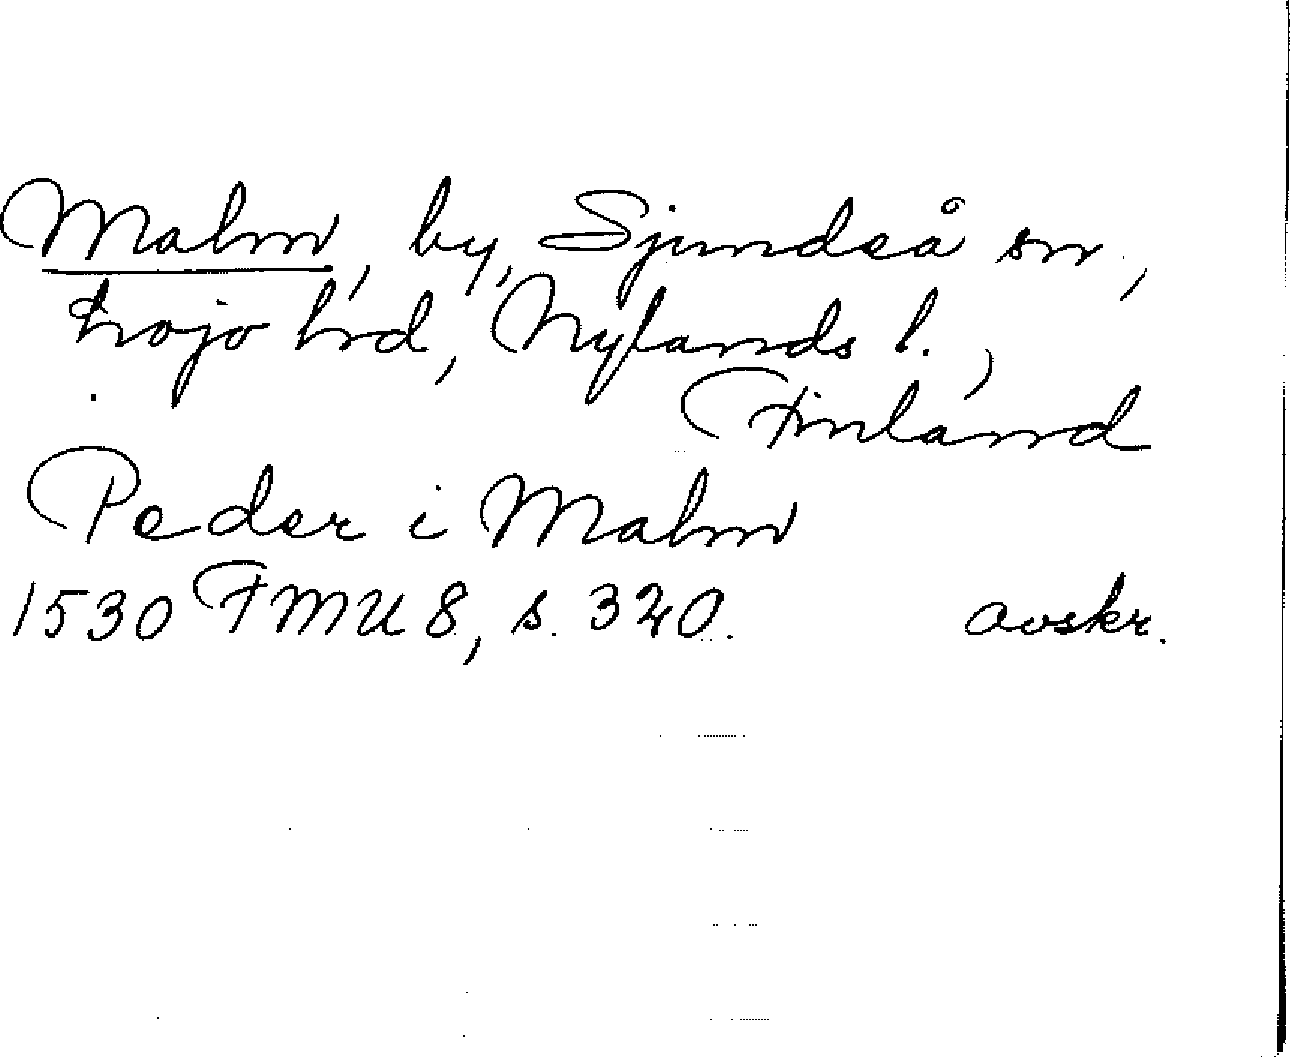 Malm, by, Sjundeå sn,
Lojo hd, Nylands l.,
Finland
Peder i Malm
1530 FMU 8, s. 320. avskr.